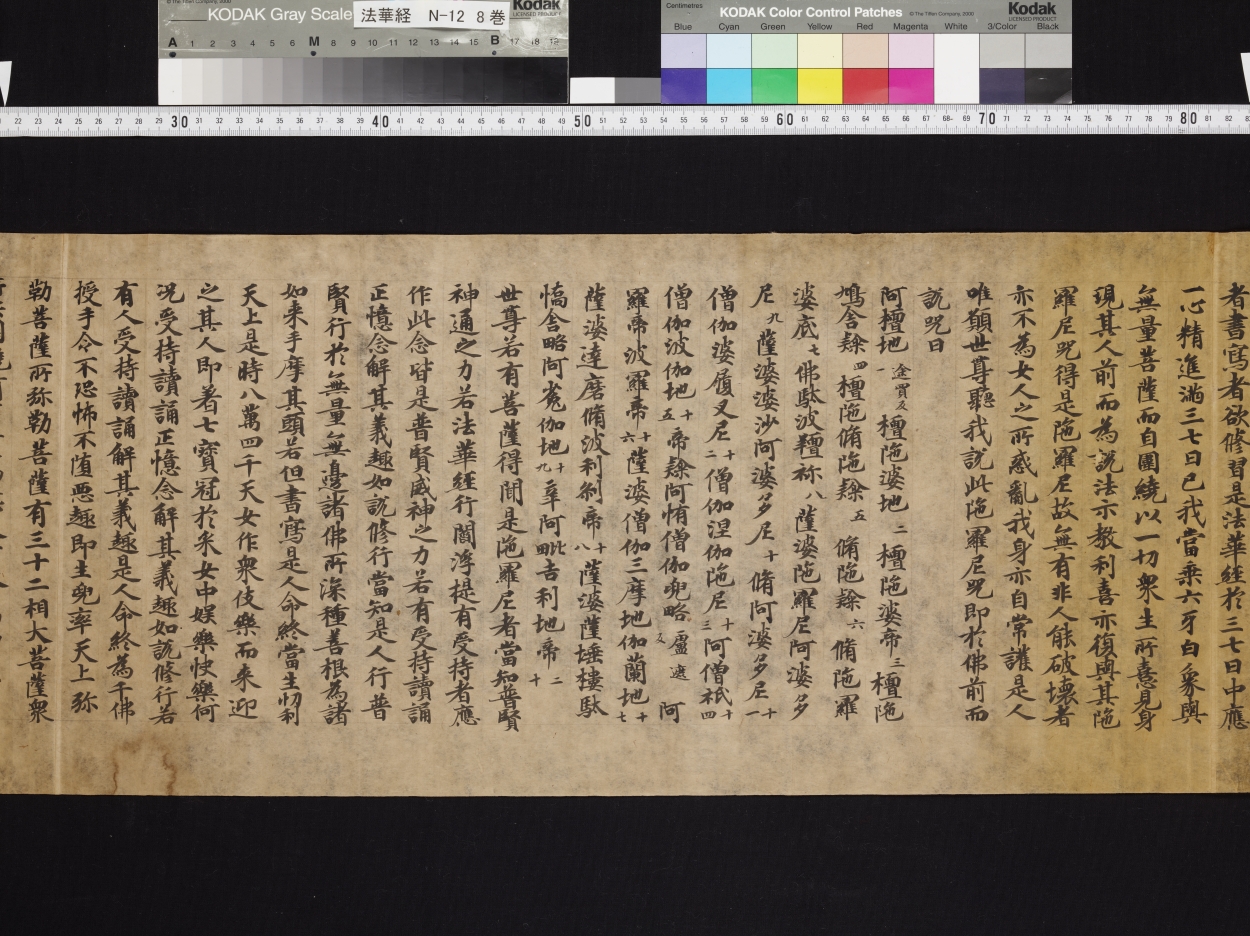 KODAK Gray Scale
法華経 N-12 8巻
Kodak
LICENSED PRODUCT
A 1 2 3 4 5 6 M 8 9 10 11 12 13 14 15 B 17 18 19
Centimetres
KODAK Color Control Patches
© The Tiffen Company, 2000
Kodak
LICENSED PRODUCT
Blue Cyan Green Yellow Red Magenta White 3/Color Black
22 23 24 25 26 27 28 29 30 31 32 33 34 35 36 37 38 39 40 41 42 43 44 45 46 47 48 49 50 51 52 53 54 55 56 57 58 59 60 61 62 63 64 65 66 67 68 69 70 71 72 73 74 75 76 77 78 79 80 81 82
者書寫者欲修習是法華經於三七日中應
一心精進滿三七日已我當乘六牙白象與
無量菩薩而自圍繞以一切衆生所憙見身
現其人前而為說法示教利喜亦復與其陁
羅尼咒得是陁羅尼故無有非人能破壞者
亦不為女人之所惑亂我身亦自常護是人
唯願世尊聽我說此陁羅尼咒即於佛前而
說咒曰
阿檀地一 途賣反 檀陁婆地二 檀陁婆帝三 檀陁
鳩舍隸四 檀陁脩陁隸五 脩陁隸六 脩陁羅
婆底七 佛馱波羶祢八 薩婆陁羅尼阿婆多
尼九 薩婆婆沙阿婆多尼十 脩阿婆多尼十一
僧伽婆履叉尼十二 僧伽涅伽陁尼十三 阿僧祇十四
僧伽波伽地十五 帝隸阿惰僧伽兜略 盧遮反 阿
羅帝波羅帝十六 薩婆僧伽三摩地伽蘭地十七
薩婆達磨脩波利刹帝十八 薩婆薩埵樓馱
憍舍略阿㝹伽地十九 辛阿毗吉利地帝二十
世尊若有菩薩得聞是陁羅尼者當知普賢
神通之力若法華經行閻浮提有受持者應
作此念皆是普賢威神之力若有受持讀誦
正憶念解其義趣如說修行當知是人行普
賢行於無量無邊諸佛所深種善根為諸
如來手摩其頭若但書寫是人命終當生忉利
天上是時八萬四千天女作衆伎樂而來迎
之其人即著七寶冠於采女中娛樂快樂何
况受持讀誦正憶念解其義趣如說修行若
有人受持讀誦解其義趣是人命終為千佛
授手令不恐怖不堕惡趣即生兜率天上弥
勒菩薩所弥勒菩薩有三十二相大菩薩衆